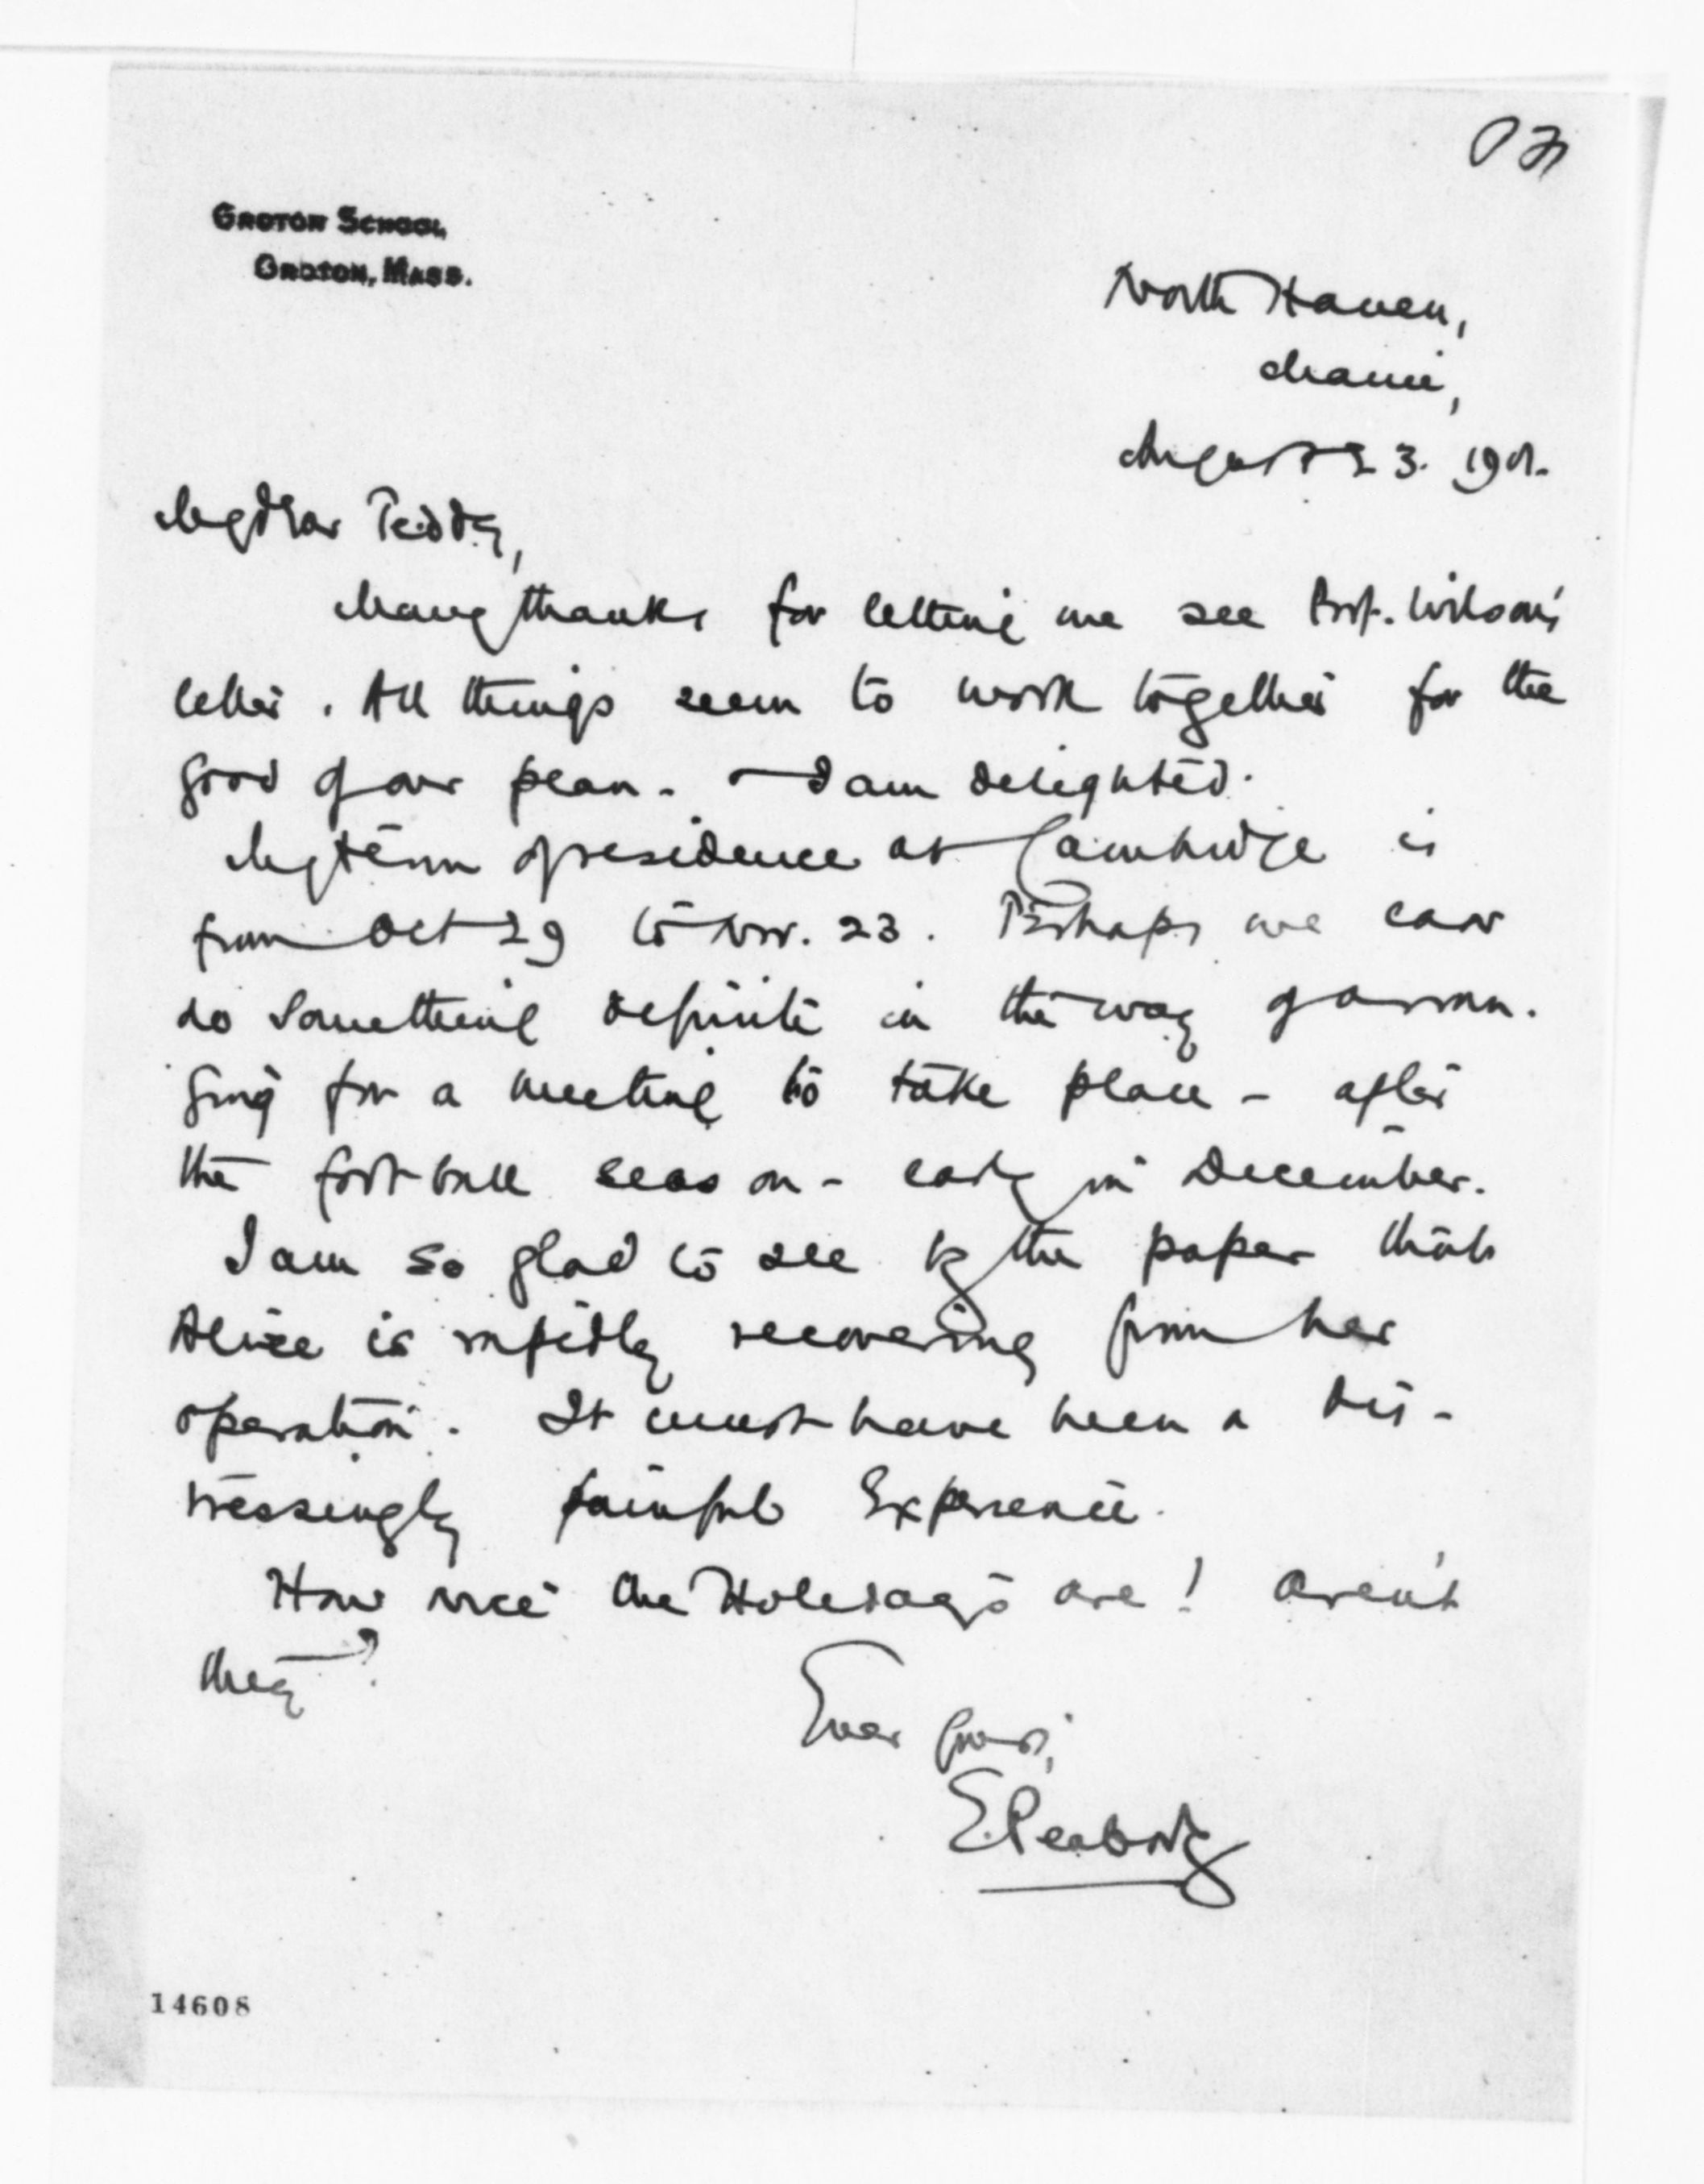 GROTON SCHOOL,
GROTON, MASS.
North Haven,
Maine,
August 23. 1901.
My dear Teddy,
Many thanks for letting me see Prof. Wilson's
letter. All things seem to work together for the
good of our plan. — I am delighted.
My term of residence at Cambridge is
from Oct 29 to Nov. 23. Perhaps we can
do something definite in the way of arran-
ging for a meeting to take place - after
the foot-ball season - early in December.
I am so glad to see by the paper that
Alice is rapidly recovering from her
operation. It must have been a dis-
tressingly painful experience.
How nice the Holidays are! aren't
they?
Ever yours,
E. Peabody
14608